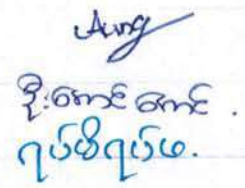 Aung
ဦးအောင်အောင်
ရပ်မိရပ်ဖ.